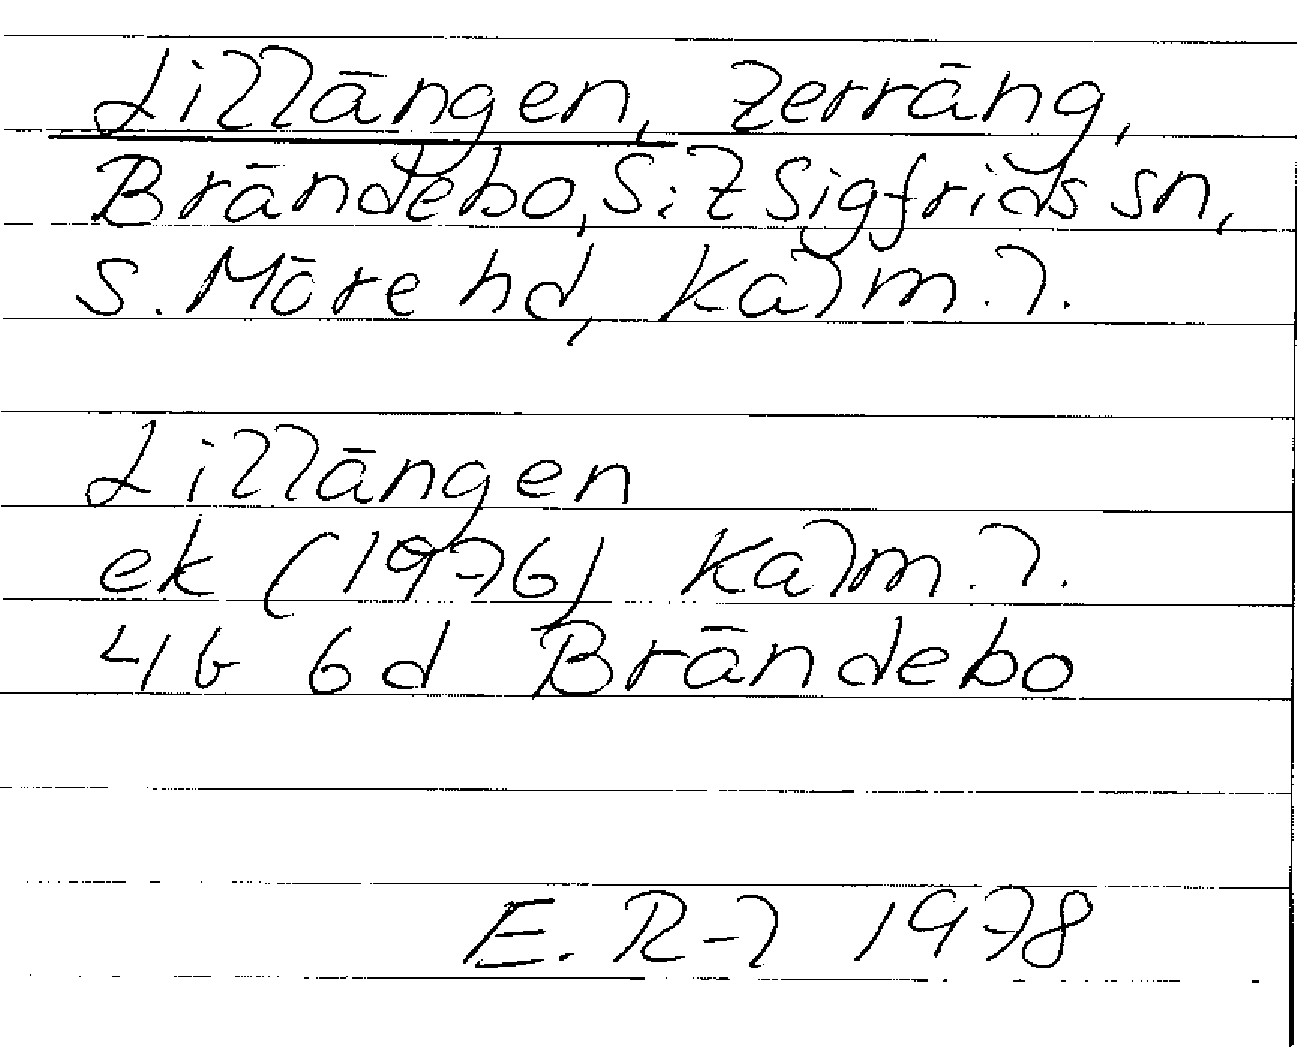 Lillängen, terräng,
Brändebo, S:t Sigfrids sn,
S. Möre hd, Kalm. l.
Lillängen
ek (1976) Kalm. l.
4G 6d Brändebo
E. R-l 1978